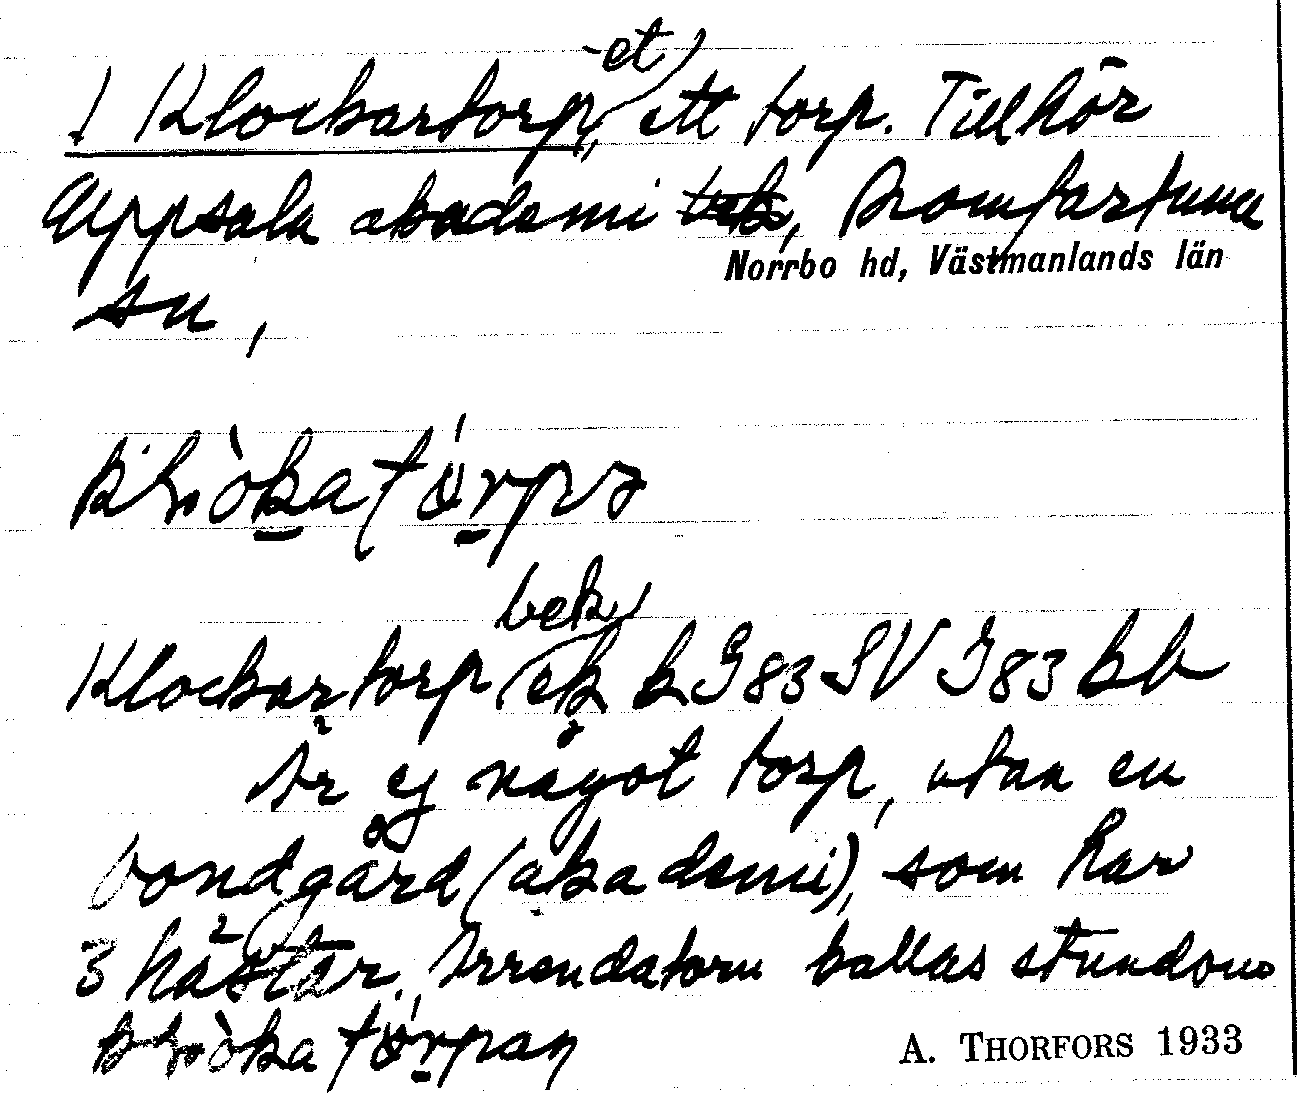 1 Klockartorp, -et, ett torp. Tillhör
Uppsala akademi, Romfartuna
Norrbo hd, Västmanlands län
sn,
Klockartorp bek ek k G83 SV G83 bb
Är ej något torp, utan en
bondgård (akademi), som har
3 hästar. Arrendatorn kallas stundom
A. THORFORS 1933